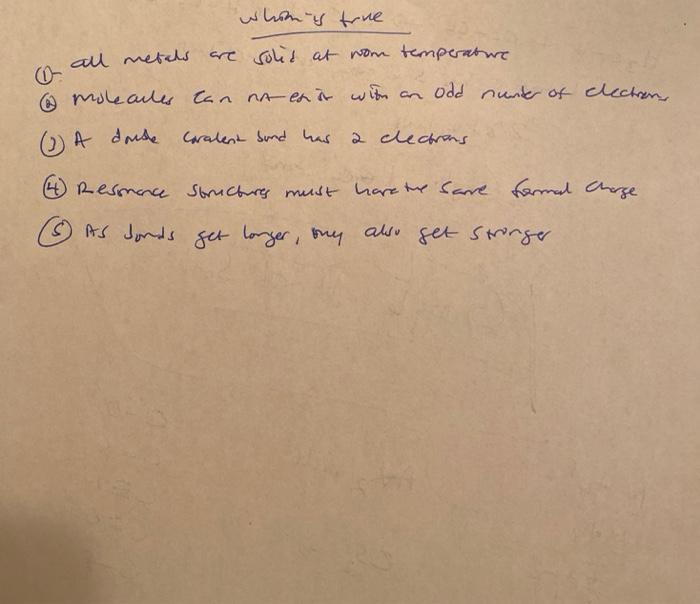 which is true
① all metals are solid at room temperature
② molecules can not exist with an odd number of electrons
(3) A double covalent bond has 2 electrons
④ Resonance structures must have the same formal charge
⑤ As bonds get longer, they also get stronger